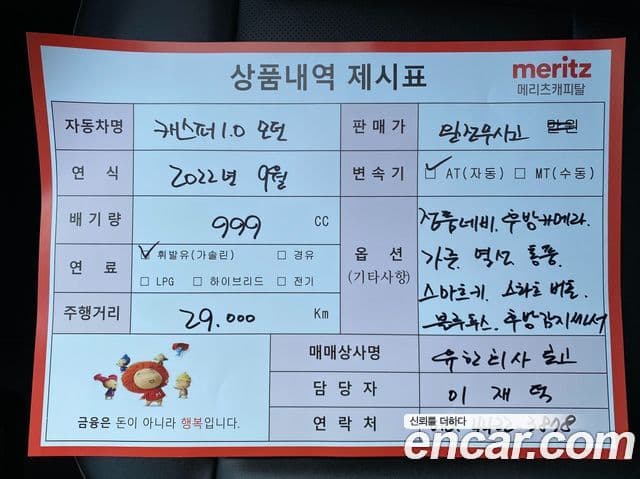 상품내역 제시표
meritz
메리츠캐피탈
자동차명 캐스퍼 1.0 모던
판매가 완전무사고 만원
연식 2022년 9월
변속기 ☑ AT(자동) □ MT(수동)
배기량 999 CC
연료 ☑ 휘발유(가솔린) □ 경유
□ LPG □ 하이브리드 □ 전기
주행거리 29.000 Km
옵션
(기타사항)
정품네비. 후방카메라.
가죽. 열선 통풍.
스마트키. 스타트 버튼.
블루투스. 후방감지세서
매매상사명
담당자 이재
연락처
금융은 돈이 아니라 행복입니다.
신뢰를 더하다
encar.com